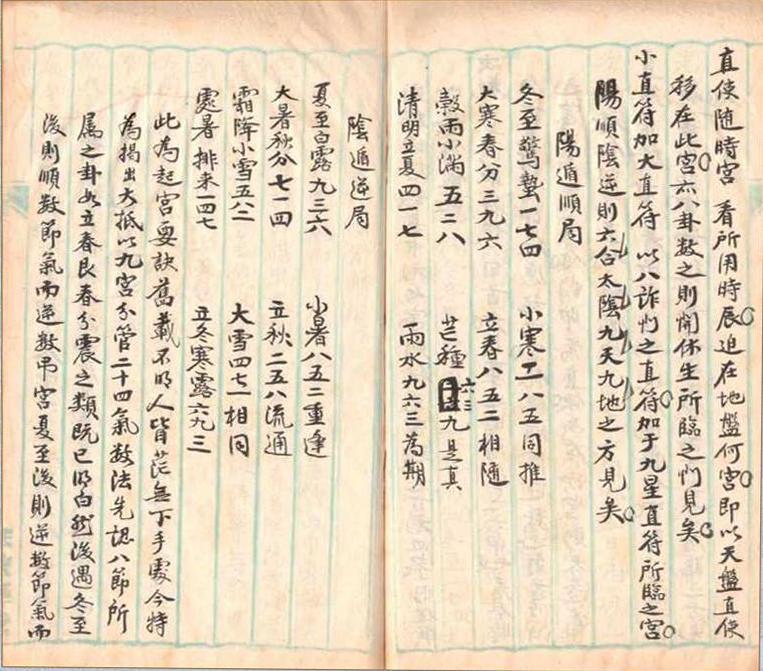 直使随時宮 看所用時辰迫在地盤何宮即以天盤直使
移在此宮六八卦數之則開休生所臨之門見矣
小直符加大直符 以八詐門之直符加于九星直符所臨之宮
陽順陰逆則六合太陰九天九地之方見矣
陽遁順局
冬至驚蟄一七四 小寒二八五同推
大寒春分三九六 立春八五二相随
榖雨小滿五二八 芒種六三九是真
清明立夏四一七 雨水九六三為期
陰遁逆局
夏至白露九三六 小暑八五二重逢
大暑秋分七一四 立秋二五八流通
霜降小雪五八二 大雪四七一相同
處暑排来一四七 立冬寒露六九三
此為起宮要訣舊載不明人皆茫無下手處今特
為揭出大抵以九宮分管二十四氣數法先認八節所
属之卦如立春艮春分震之類既已明白然後遇冬至
後則順數節氣而逆數吊宮夏至後則逆數節氣而